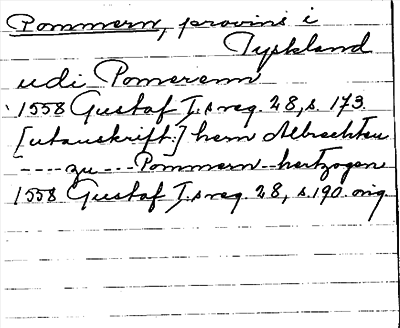 Pommern, provins i
Tyskland
udi Pomerenn
1558 Gustaf I:s reg. 28, s. 173.
[utanskrift:] hern Albrechten
---- zu --- Pommern -- hertzogen
1558 Gustaf I:s reg. 28, s. 190. orig.